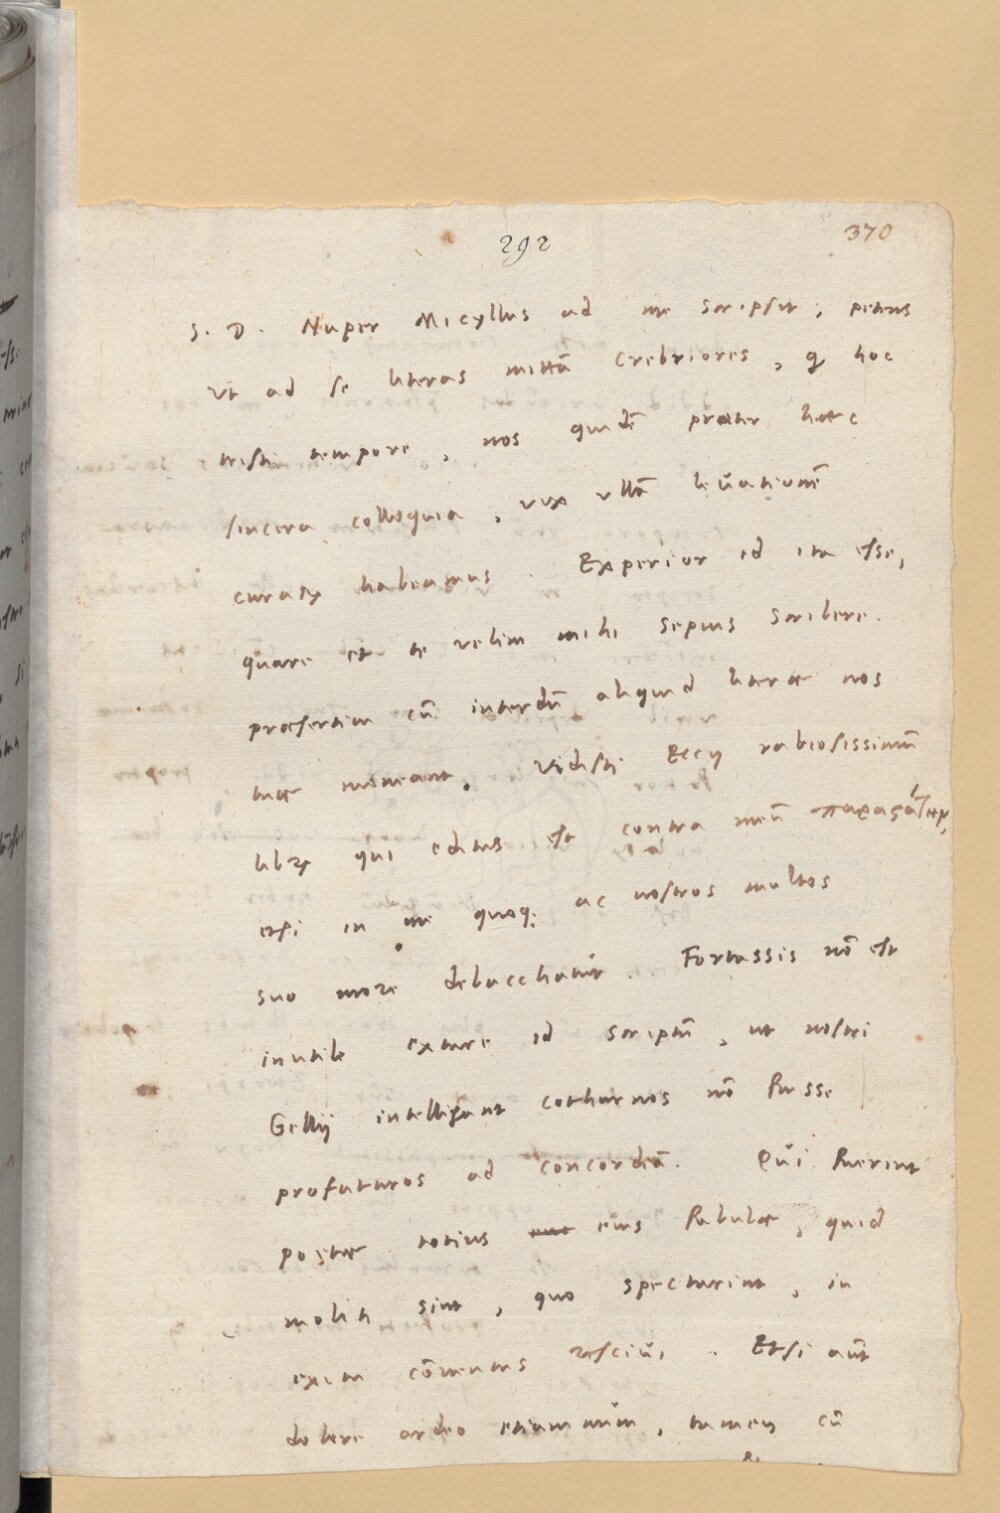 292
370
S. D. Nuper Micyllus ad me scripsit, petens
ut ad se literas mittā crebriores, q̨ hoc
tristi tempore, nos quidē praeter haec
sincera colloquia, vix ullā levationē
curarꝝ habeamus. Experior id ita esse,
quare et te velim mihi sepius scribere.
praesertim cū interdū aliquid literae nos
tuae moneant. Vidisti Eccij rabiosissimū
librꝝ qui editus est contra meū παραστάτην,
etsi in me quoq; ac nostros multos
suo more debacchatur. Fortassis nō est
inutile extare id scriptū, ut nostri
Gellij intelligant cothurnos nō fuisse
profuturos ad concordiā. Qui fuerint
poetae totius eius fabulae, quid
moliti sint, quo spectarint, in
exitu cōventus rescivi. Etsi aūt
dolore ardeo etiamnum, tamen cū